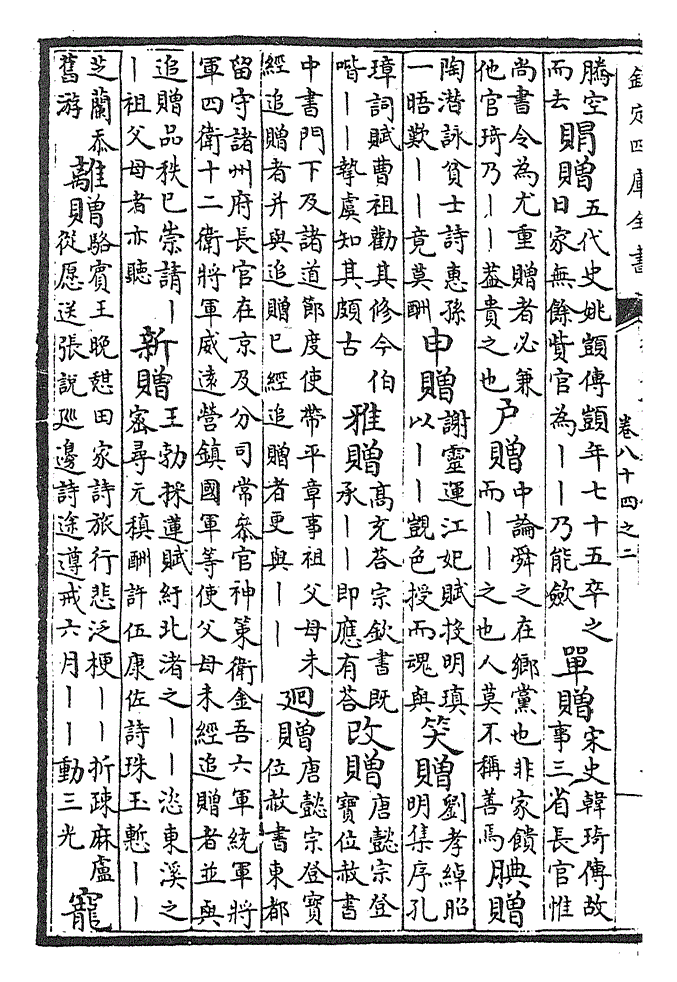 欽定四庫全書
卷八十四之二
騰空而去 賵贈 五代史姚顗傳顗年七十五卒之日家無餘貲官為丨丨乃能歛 單贈 宋史韓琦傳故事三省長官惟
尚書令為尤重贈者必兼他官琦乃丨丨葢貴之也 户贈 中論舜之在鄉黨也非家饋而丨丨之也人莫不稱善焉 腆贈
陶潛詠貧士詩惠孫一晤歎丨丨竟莫酬 申贈 謝靈運江妃賦投明瑱以丨丨覬色授而魂與 笑贈 劉孝綽昭明集序孔
璋詞賦曹祖勸其修今伯喈丨丨摯虞知其頗古 雅贈 髙充荅宗欽書既承丨丨即應有荅 改贈 唐懿宗登寶位赦書
中書門下及諸道節度使帶平章事祖父母未經追贈者并與追贈已經追贈者更與丨丨 廻贈 唐懿宗登寶位赦書東都
留守諸州府長官在京及分司常叅官神策衛金吾六軍統軍將軍四衛十二衛將軍威遠營鎮國軍等使父母未經追贈者並與
追贈品秩已崇請丨丨祖父母者亦聽 新贈 王勃採蓮賦紆北渚之丨丨恣東溪之密尋元稹酬許伍康佐詩珠玉慙丨丨
芝蘭忝舊游 離贈 駱賓王晚憩田家詩旅行悲泛梗丨丨折疎麻盧從愿送張說廵邊詩途遵戒六月丨丨動三光 寵